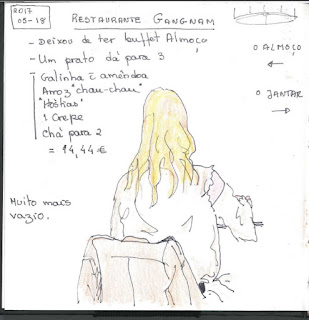 2017
05-18
RESTAURANTE GANGNAM
- Deixou de ter buffet Almoço
- Um prato dá para 3
Galinha c̄ amêndoa
Arroz "chau-chau"
"Hóstias"
1 Crepe
Chá para 2
= 14,44 €
O ALMOÇO
←
O JANTAR
→
Muito mais
vazio.